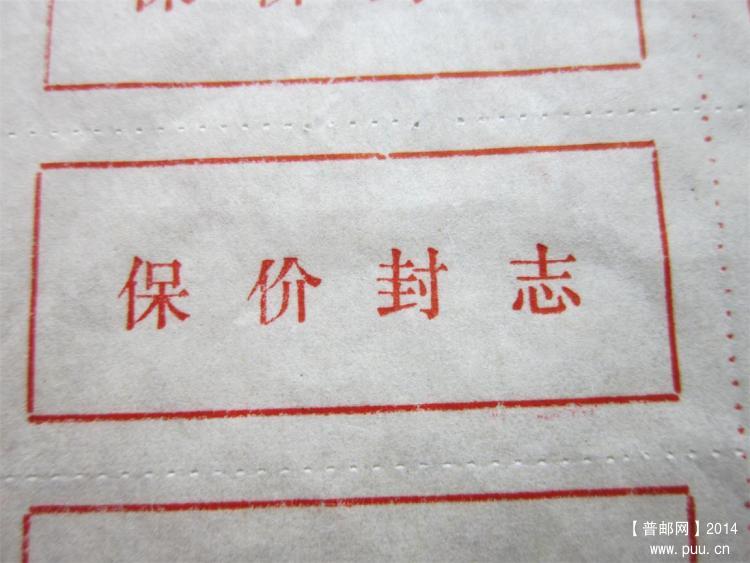 保价封志
【普邮网】2014
www.puu.cn